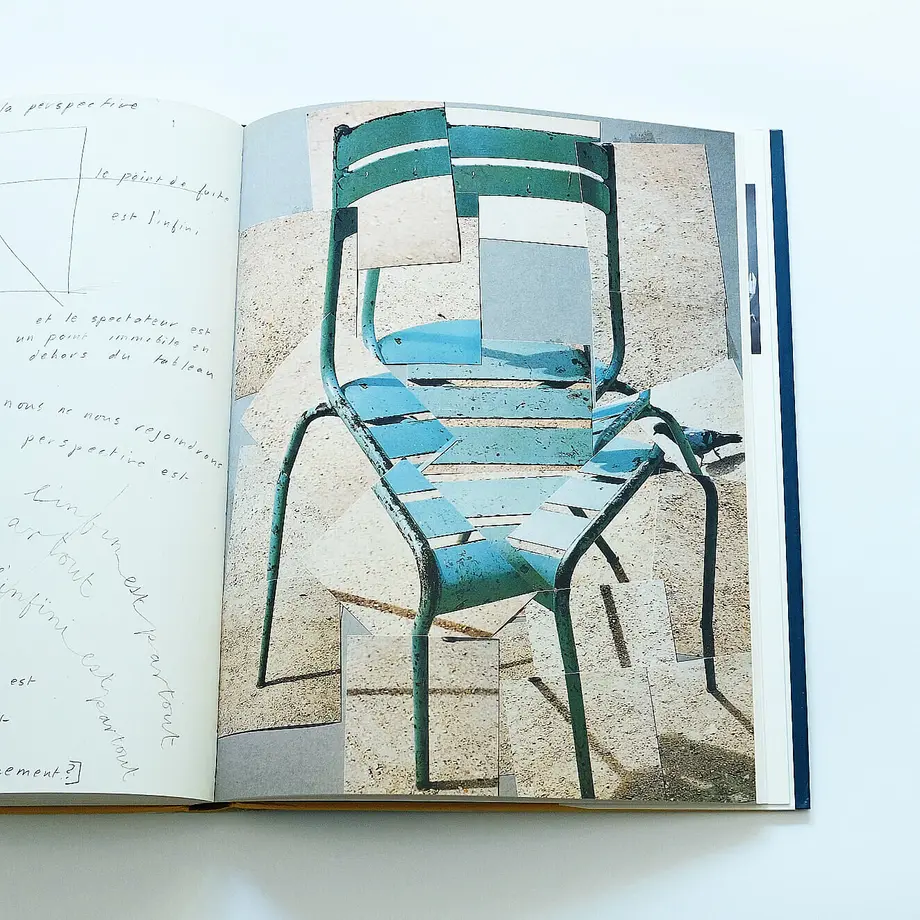 la perspective
le point de fuite
est l'infini,
et le spectateur est
un point immobile en
dehors du tableau
nous ne nous rejoindrons
perspective est
l'infini est partout
partout
l'infini est partout
est